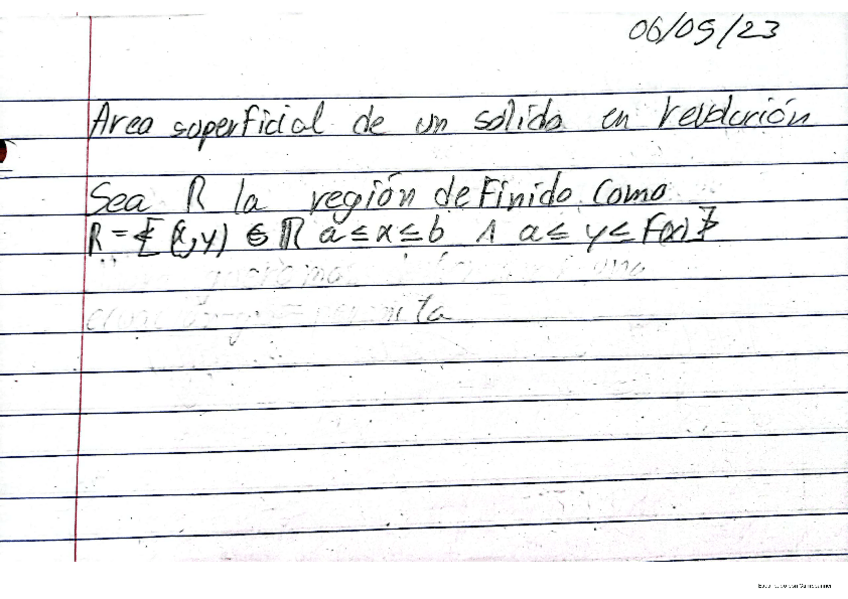 06/05/23
Area superficial de un solido en revolución
Sea R la región definido como
R = { (x,y) ∈ ℝ a ≤ x ≤ b ∧ a ≤ y ≤ F(x) }